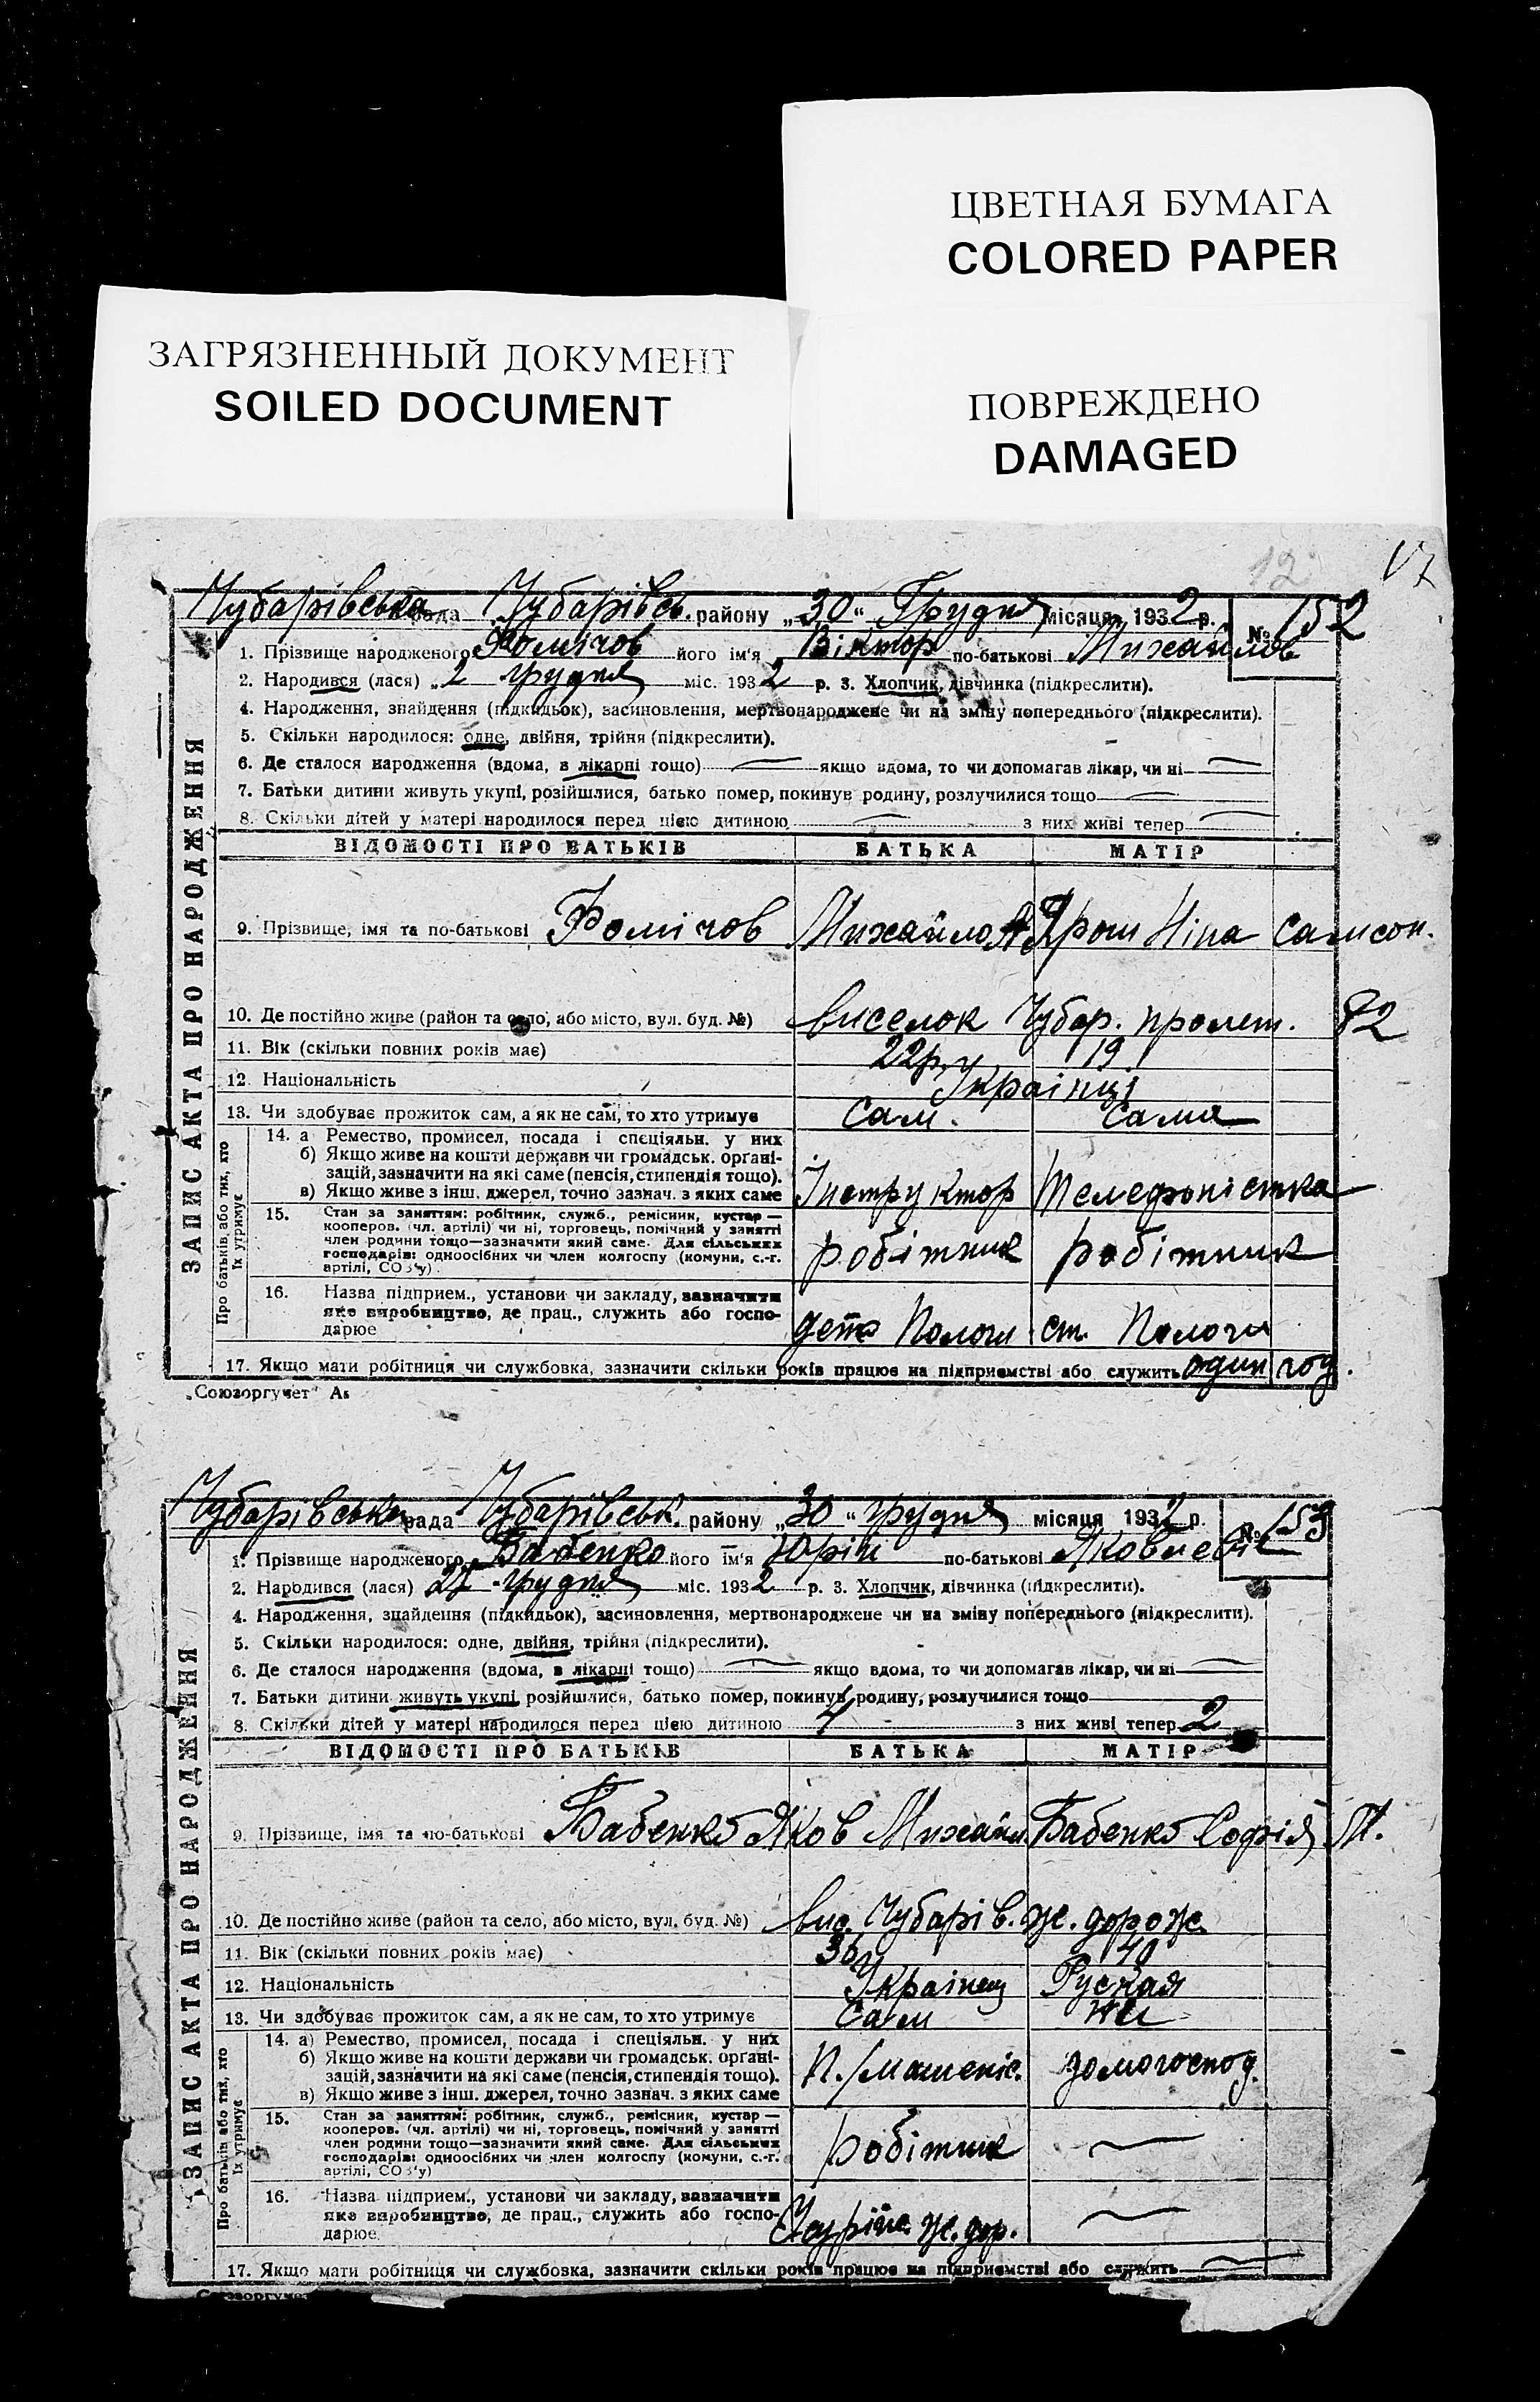 ЦВЕТНАЯ БУМАГА
COLORED PAPER
ЗАГРЯЗНЕННЫЙ ДОКУМЕНТ
SOILED DOCUMENT
ПОВРЕЖДЕНО
DAMAGED
12 17
Чубарівська рада Чубарівськ. району „30“ Грудня місяця 1932 р. № 152
1. Прізвище народженого Фомічов його ім'я Віктор по-батькові Михайлов
2. Народився (лася) „2 грудня міс. 1932 р. 3. Хлопчик, дівчинка (підкреслити).
4. Народження, знайдення (підкидьок), засиновлення, мертвонароджене чи на зміну попереднього (підкреслити).
5. Скільки народилося: одне, двійня, трійня (підкреслити).
6. Де сталося народження (вдома, в лікарні тощо) — якщо вдома, то чи допомагав лікар, чи ні —
7. Батьки дитини живуть укупі, розійшлися, батько помер, покинув родину, розлучилися тощо —
8. Скільки дітей у матері народилося перед цією дитиною — з них живі тепер —
ЗАПИС АКТА ПРО НАРОДЖЕННЯ
ВІДОМОСТІ ПРО БАТЬКІВ БАТЬКА МАТІР
9. Прізвище, імя та по-батькові Фомічов Михайло А. Ярош Ніна Самсон.
10. Де постійно живе (район та село, або місто, вул. буд. №) виселок Чубар. пролет. 82
11. Вік (скільки повних років має) 22 р. 19
12. Національність Українці
13. Чи здобуває прожиток сам, а як не сам, то хто утримує сам. сама
Про батьків, або тих, хто їх утримує
14. а Ремество, промисел, посада і спеціяльн. у них
б) Якщо живе на кошти держави чи громадськ. органі-
зацій, зазначити на які саме (пенсія, стипендія тощо).
в) Якщо живе з інш. джерел, точно зазнач. з яких саме Інструктор Телефоністка
15. Стан за заняттям: робітник, служб., ремісник, кустар —
кооперов. (чл. артілі) чи ні, торговець, помічний у занятті
член родини тощо—зазначити який саме. Для сільських
господарів: одноосібних чи член колгоспу (комуни, с.-г.
артілі, СОЗ'у). робітник робітник
16. Назва підприєм., установи чи закладу, зазначити
яке виробництво, де прац., служить або госпо-
дарює депо Пологи ст. Пологи
17. Якщо мати робітниця чи службовка, зазначити скільки років працює на підприємстві або служить один год.
„Союзоргучет“
Чубарівська рада Чубарівськ. району „30“ грудня місяця 1932 р. № 153
1. Прізвище народженого Бабенко його ім'я Юрій по-батькові Яковлевіч
2. Народився (лася) 27 грудня міс. 1932 р. 3. Хлопчик, дівчинка (підкреслити).
4. Народження, знайдення (підкидьок), засиновлення, мертвонароджене чи на зміну попереднього (підкреслити).
5. Скільки народилося: одне, двійня, трійня (підкреслити).
6. Де сталося народження (вдома, в лікарні тощо) — якщо вдома, то чи допомагав лікар, чи ні —
7. Батьки дитини живуть укупі, розійшлися, батько помер, покинув родину, розлучилися тощо
8. Скільки дітей у матері народилося перед цією дитиною 4 з них живі тепер 2
ЗАПИС АКТА ПРО НАРОДЖЕННЯ
ВІДОМОСТІ ПРО БАТЬКІВ БАТЬКА МАТІР
9. Прізвище, імя та по-батькові Бабенко Яков Михайл. Бабенко Софія М.
10. Де постійно живе (район та село, або місто, вул. буд. №) вис. Чубарів. ж. дорож.
11. Вік (скільки повних років має) 36 40
12. Національність Українец Руская
13. Чи здобуває прожиток сам, а як не сам, то хто утримує сам
Про батьків або тих, хто їх утримує
14. а) Ремество, промисел, посада і спеціяльн. у них
б) Якщо живе на кошти держави чи громадськ. органі-
зацій, зазначити на які саме (пенсія, стипендія тощо).
в) Якщо живе з інш. джерел, точно зазнач. з яких саме П./машеніс. домогоспод.
15. Стан за заняттям: робітник, служб., ремісник, кустар —
кооперов. (чл. артілі) чи ні, торговець, помічний у занятті
член родини тощо—зазначити який саме. Для сільських
господарів: одноосібних чи член колгоспу (комуни, с.-г.
артілі, СОЗ'у) робітник —
16. Назва підприєм., установи чи закладу, зазначити
яке виробництво, де прац., служить або госпо-
дарює. ж. дор. —
17. Якщо мати робітниця чи службовка, зазначити скільки років працює на підприємстві або служить —